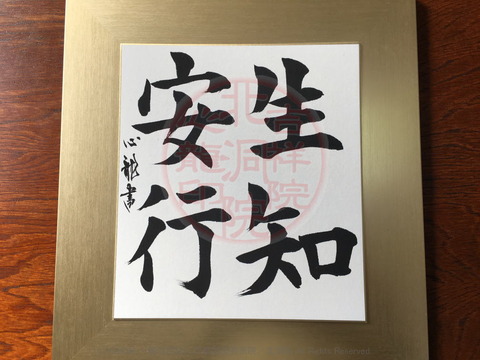 生知
安行
心龍書